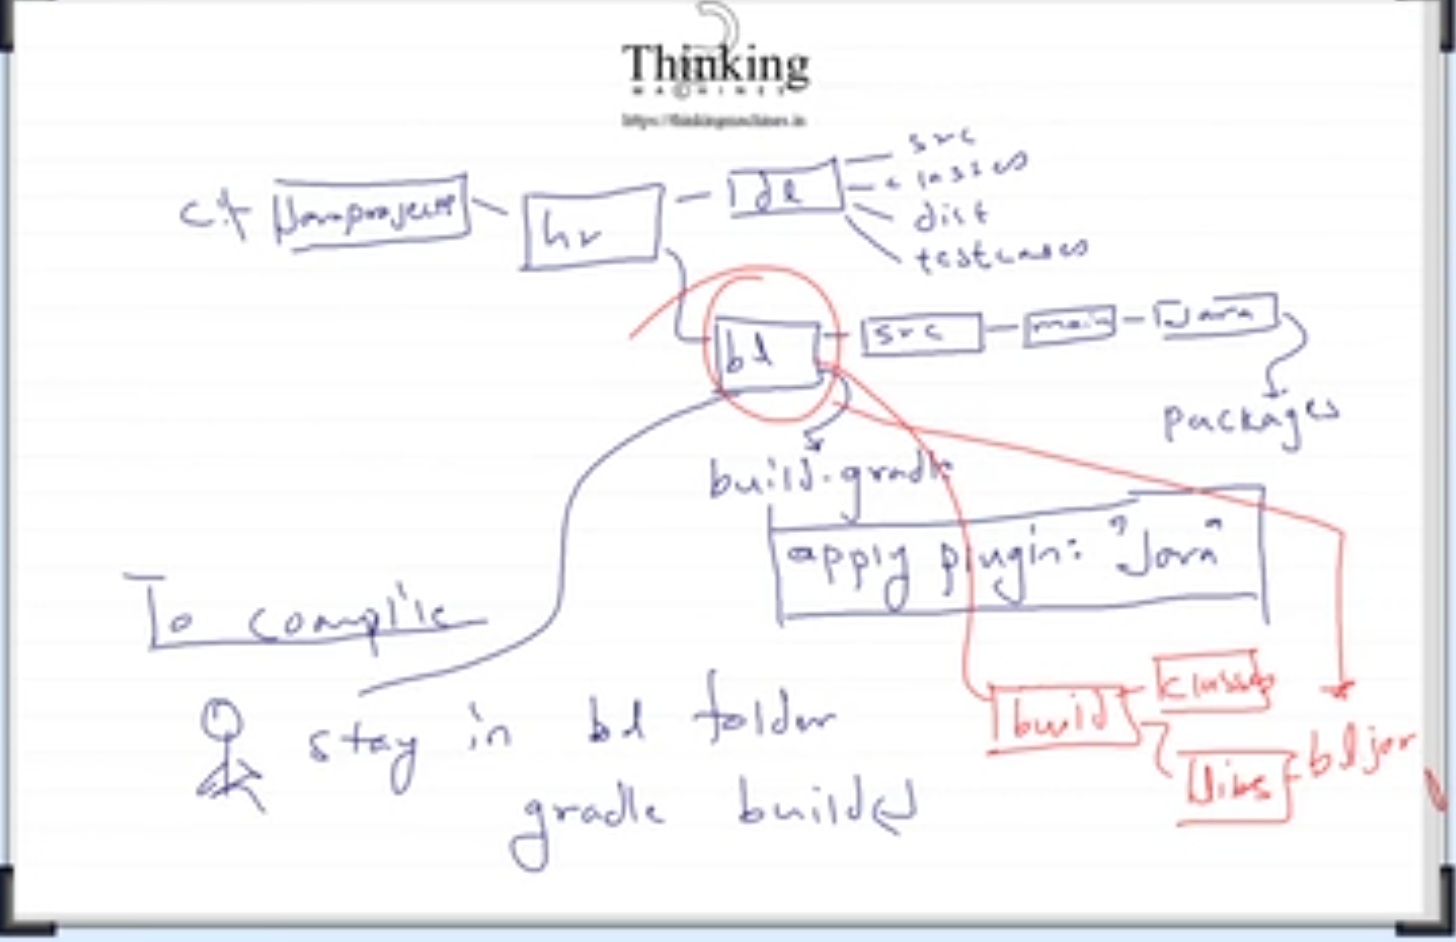 Thinking
MACHINES
https://thinkingmachines.in
src
classes
c:\ Javaprojects hr
dist
testcases
bl src main Java
packages
build.gradle
apply plugin: "Java"
To
stay in bl folder
gradle build
build classes
libs bl.jar